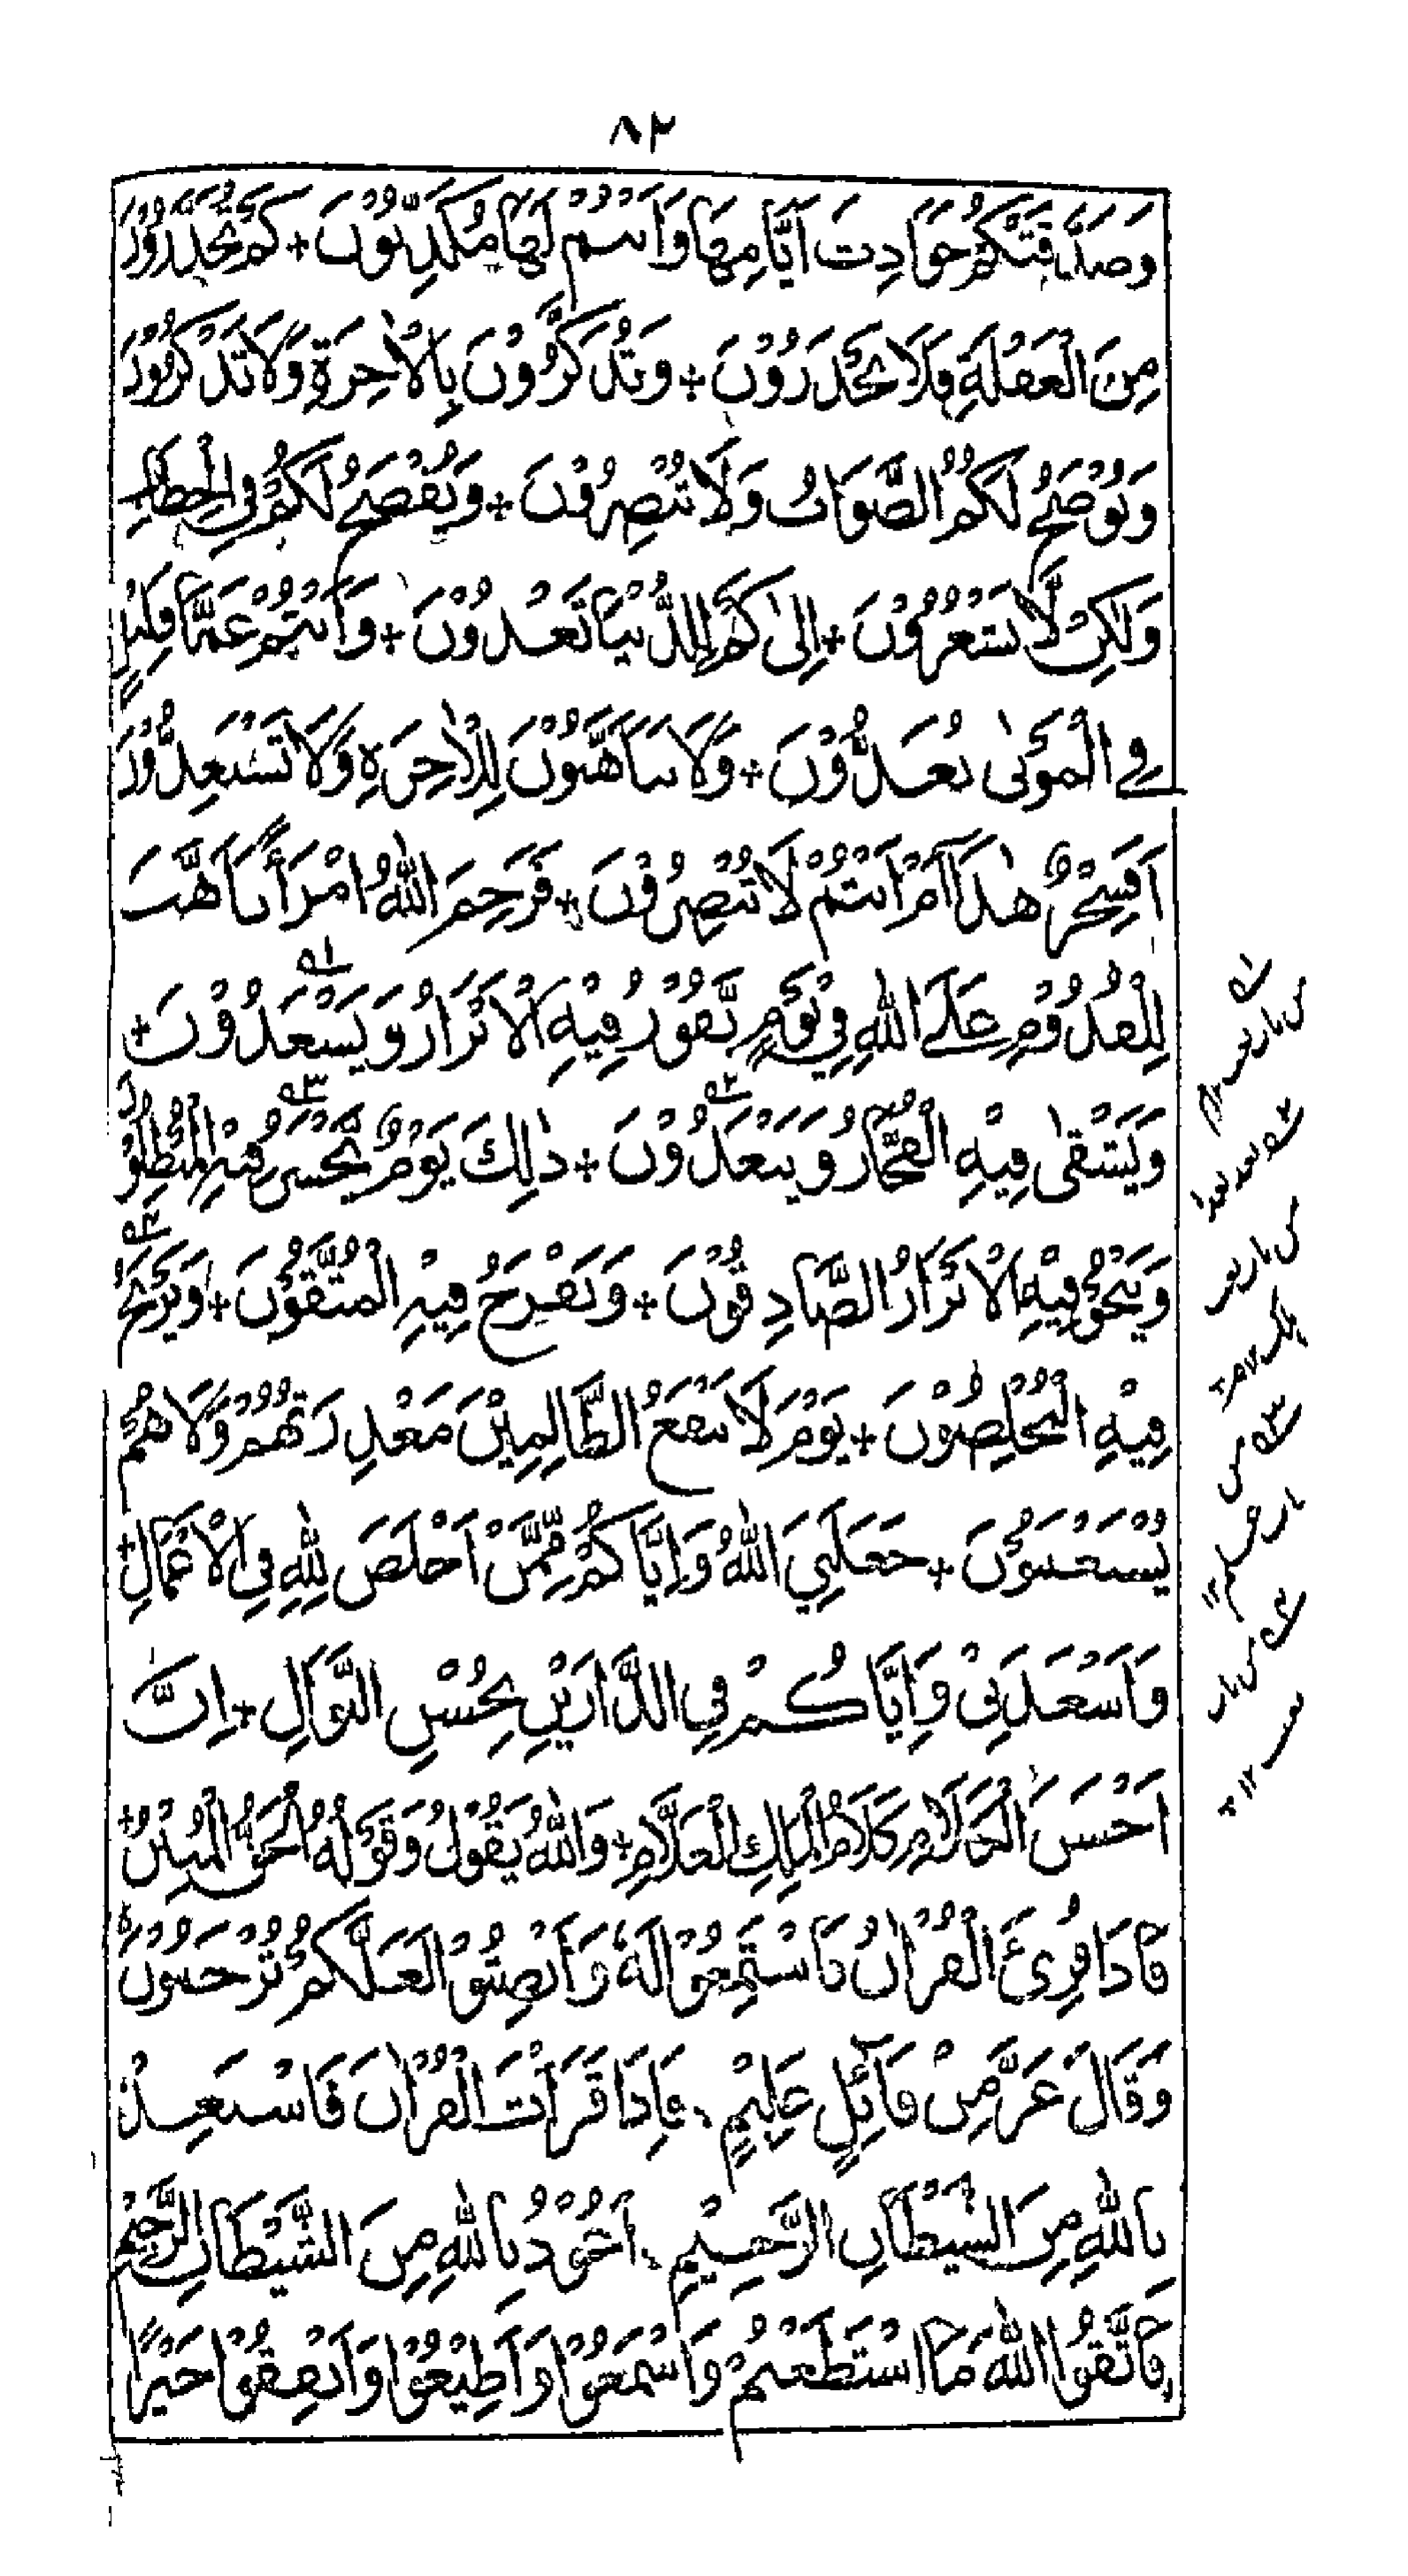 ٨٢
وَصَدَّقَتْكُمْ حَوَادِثَ اَيَّامِهَا وَاَنْتُمْ لَهَا مُكَذِّبُوْنَ + كَمْ تُحَذَّرُوْنَ
مِنَ الْغَفْلَةِ فَلَا تَحْذَرُوْنَ + وَتُذَكَّرُوْنَ بِالْاٰخِرَةِ وَلَا تَذْكُرُوْنَ
وَيُوْضَحُ لَكُمُ الصَّوَابُ وَلَا تُبْصِرُوْنَ + وَيُفْصَحُ لَكُمْ فِي الْخِطَابِ
وَلٰكِنْ لَّا تَشْعُرُوْنَ + اِلٰى كَمْ لِلدُّنْيَا تَعْدُوْنَ + وَاَنْتُمْ عَمَّا قَلِيْلٍ
فِي الْمَوْتٰى تُعَدُّوْنَ + وَلَا تَتَاَهَّبُوْنَ لِلْاٰخِرَةِ وَلَا تَسْتَعِدُّوْنَ
اَفَسِحْرٌ هٰذَا اَمْ اَنْتُمْ لَا تُبْصِرُوْنَ + فَرَحِمَ اللّٰهُ امْرَأً تَاَهَّبَ
لِلْقُدُوْمِ عَلَى اللّٰهِ فِيْ يَوْمٍ يَّفُوْزُ فِيْهِ الْاَبْرَارُ وَيَسْعَدُوْنَ ٥١ +
وَيَشْقٰى فِيْهِ الْفُجَّارُ وَيَبْعَدُوْنَ ٥٢ + ذٰلِكَ يَوْمٌ يَخْسَرُ ٥٣ فِيْهِ الْمُبْطِلُوْنَ
وَيَنْجُوْ فِيْهِ الْاَبْرَارُ الصَّادِقُوْنَ + وَيَفْرَحُ فِيْهِ الْمُتَّقُوْنَ + وَيَرْبَحُ
فِيْهِ الْمُخْلِصُوْنَ + يَوْمَ لَا يَنْفَعُ الظَّالِمِيْنَ مَعْذِرَتُهُمْ وَلَا هُمْ
يُسْتَعْتَبُوْنَ + جَعَلَنِيَ اللّٰهُ وَاِيَّاكُمْ مِّمَّنْ اَخْلَصَ لِلّٰهِ فِي الْاَعْمَالِ +
وَاَسْعَدَنِيْ وَاِيَّاكُمْ فِي الدَّارَيْنِ بِحُسْنِ النَّوَالِ + اِنَّ
اَحْسَنَ الْكَلَامِ كَلَامُ الْمَلِكِ الْعَلَّامِ + وَاللّٰهُ يَقُوْلُ وَقَوْلُهُ الْحَقُّ الْمُبِيْنُ +
فَاِذَا قُرِئَ الْقُرْاٰنُ فَاسْتَمِعُوْا لَهٗ وَاَنْصِتُوْا لَعَلَّكُمْ تُرْحَمُوْنَ
وَقَالَ عَزَّ مِنْ قَآئِلٍ عَلِيْمٍ فَاِذَا قَرَأْتَ الْقُرْاٰنَ فَاسْتَعِذْ
بِاللّٰهِ مِنَ الشَّيْطَانِ الرَّجِيْمِ اَعُوْذُ بِاللّٰهِ مِنَ الشَّيْطَانِ الرَّجِيْمِ
فَاتَّقُوا اللّٰهَ مَا اسْتَطَعْتُمْ وَاسْمَعُوْا وَاَطِيْعُوْا وَاَنْفِقُوْا خَيْرًا